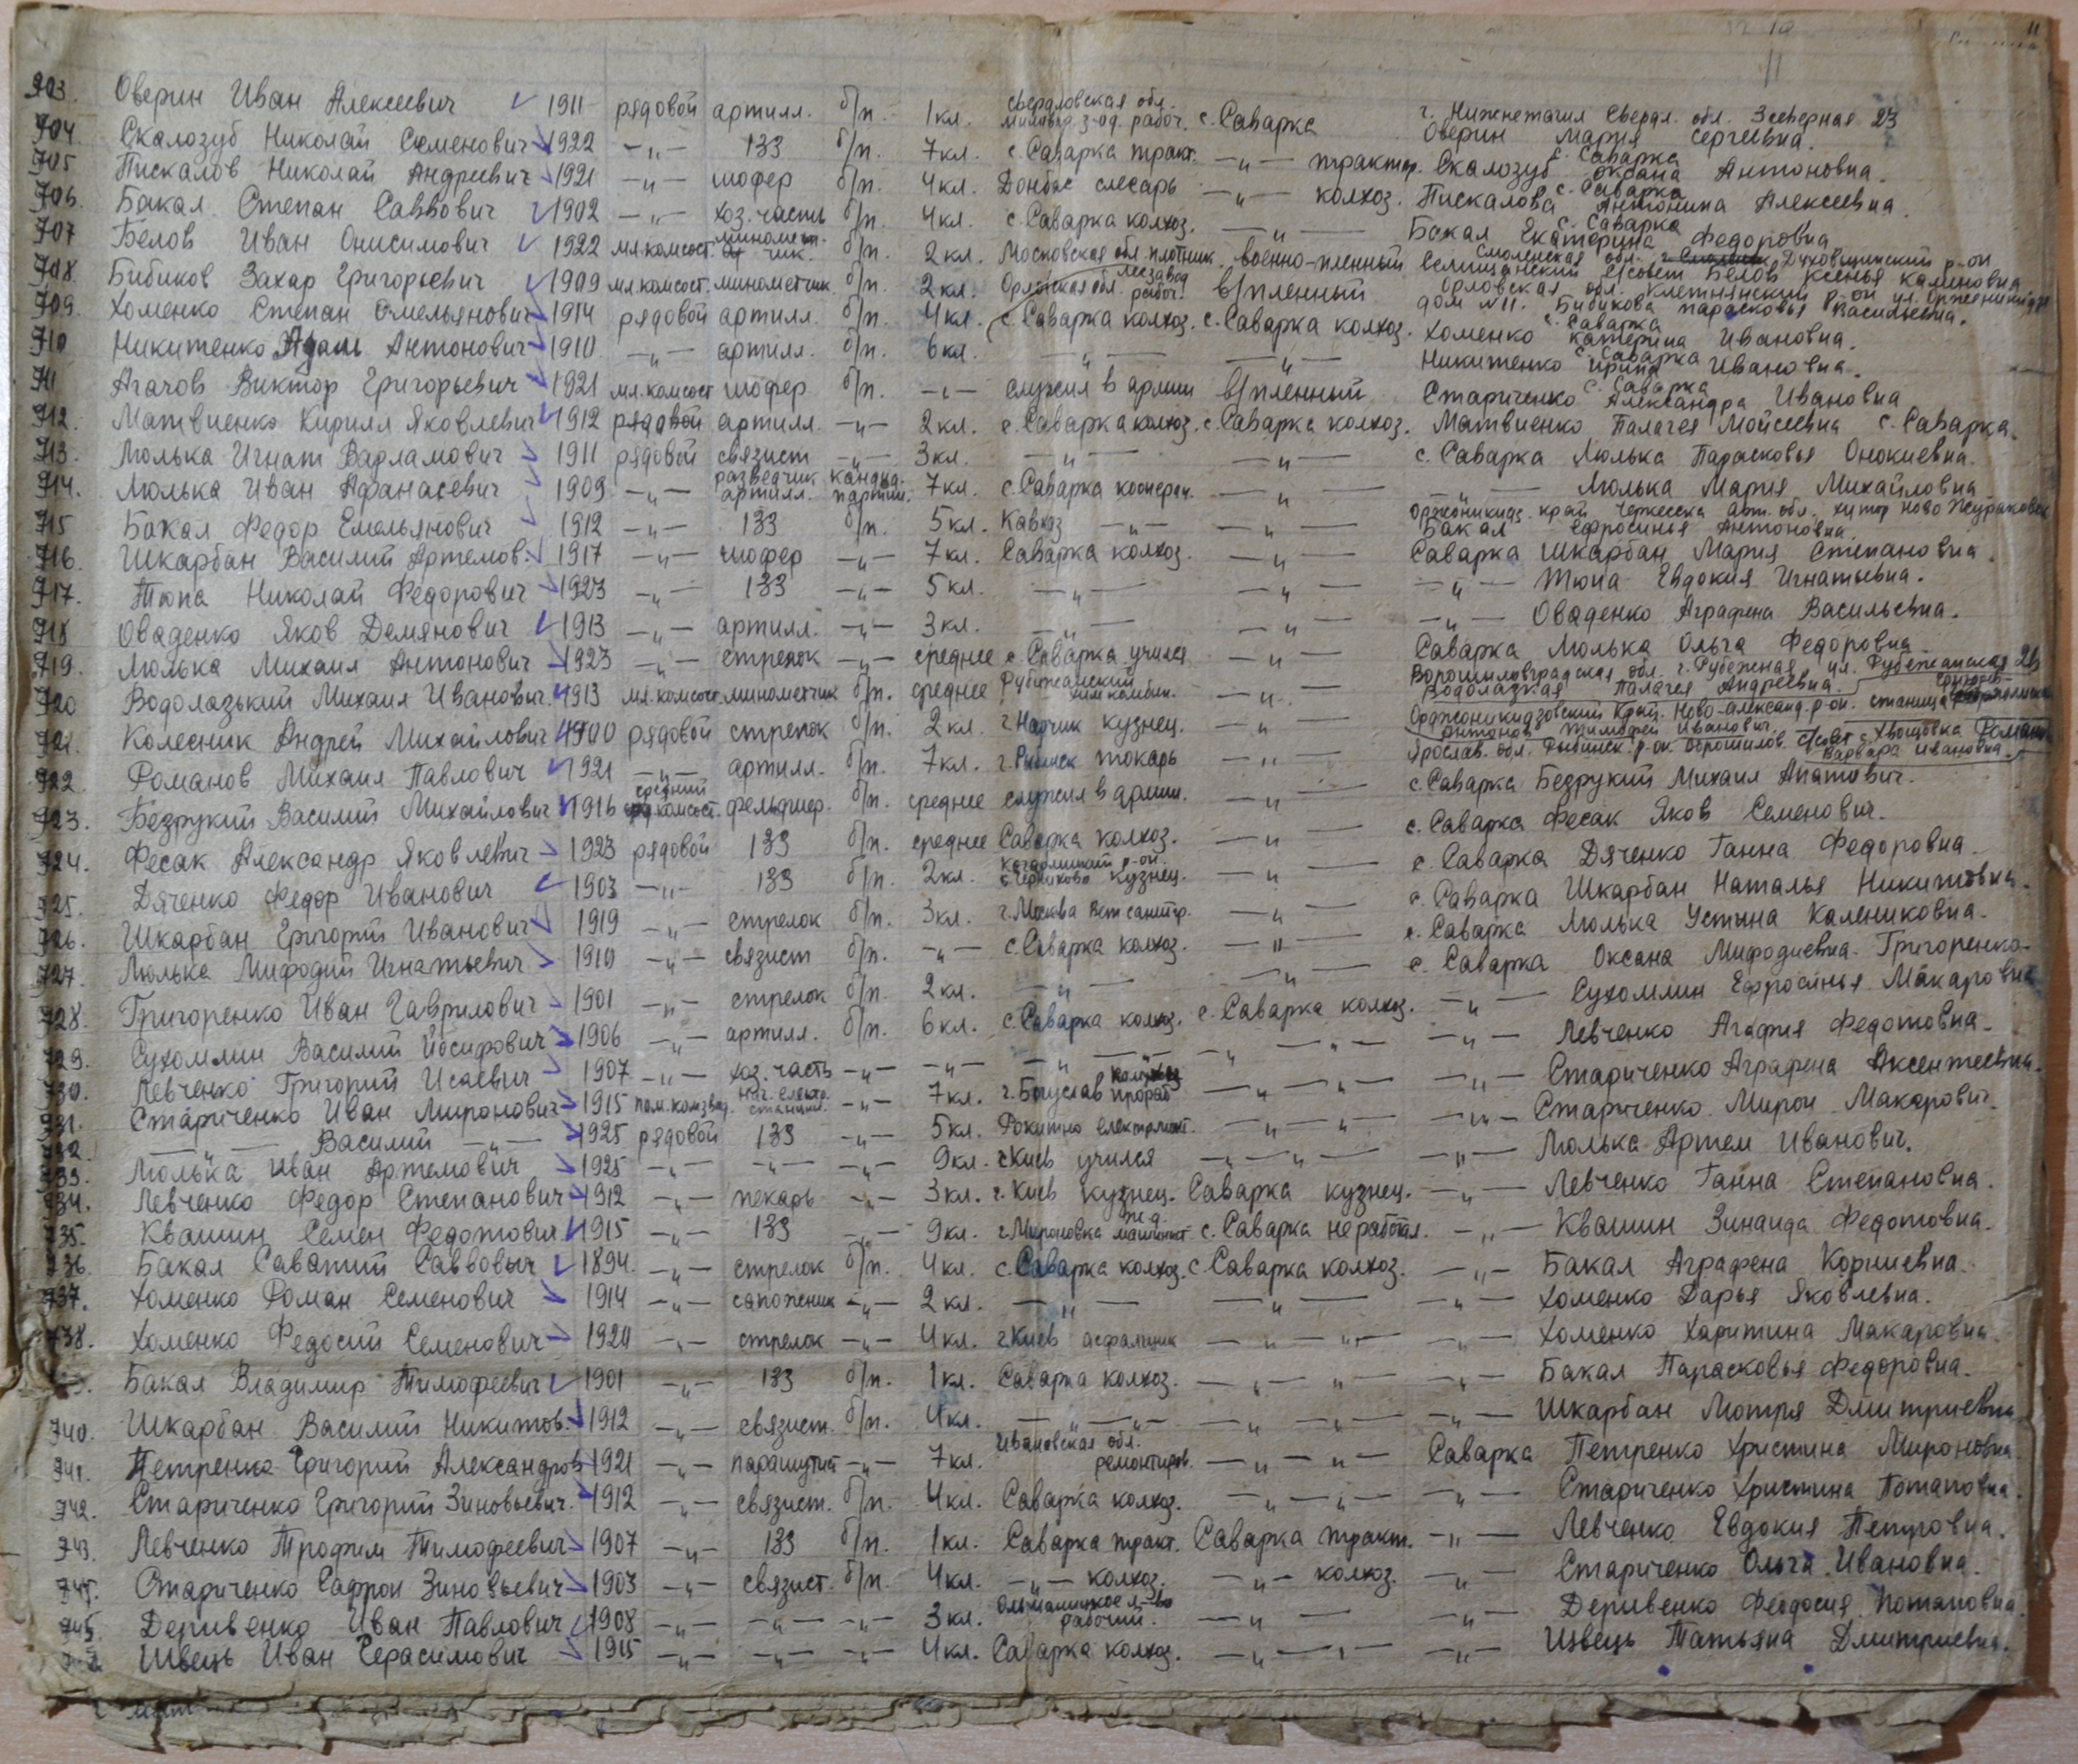 11
703. Оверин Иван Алексеевич 1911 рядовой артилл. б/п. 1 кл. Свердловская обл. рабоч. с. Саварка г. Нижнетагил Свердл. обл. Зсеверная 23 Оверин Мария Сергеевна.
704. Скалозуб Николай Семенович 1922 —„— 133 б/п. 7 кл. с. Саварка тракт. —„— трактор. с. Саварка Скалозуб Оксана Антоновна.
705 Пискалов Николай Андреевич 1921 —„— шофер б/п. 4 кл. Донбас слесарь —„— колхоз. с. Саварка Пискалова Антонина Алексеевна.
706. Бакал Степан Саввович 1902 —„— хоз. часть б/п. 4 кл. с. Саварка колхоз. —„— с. Саварка Бакал Екатерина Федоровна
707 Белов Иван Онисимович 1922 мл. комсост. миномет-чик. б/п. 2 кл. Московская обл. плотник. военно-пленный Смоленская обл. Духовщинский р-он с/совет Белов Ксенья Калиновна
708. Бибиков Захар Григорьевич 1909 мл. комсост. минометчик. б/п. 2 кл. Орловская обл. лесзавод рабоч. в/пленный Орловская обл. Клетнянский р-он ул. Орженикидзе дом №11. Бибикова Парасковья Васильевна.
709. Хоменко Степан Омельянович 1914 рядовой артилл. б/п. 4 кл. с. Саварка колхоз. с. Саварка колхоз. с. Саварка Хоменко Катерина Ивановна.
710 Никитенко Адам Антонович 1910 —„— артилл. б/п. 6 кл. —„— —„— с. Саварка Никитенко Ирина Ивановна.
711 Агачов Виктор Григорьевич 1921 мл. комсост шофер б/п. —„— служил в армии в/пленный с. Саварка Стариченко Александра Ивановна
712. Матвиенко Кирилл Яковлевич 1912 рядовой артилл. —„— 2 кл. с. Саварка колхоз. с. Саварка колхоз. Матвиенко Палагея Мойсеевна с. Саварка.
713. Люлька Игнат Варламович 1911 рядовой связист —„— 3 кл. —„— —„— с. Саварка Люлька Парасковья Онокиевна.
714. Люлька Иван Афанасевич 1909 —„— разведчик артилл. кандид. партии. 7 кл. с. Саварка коопер. —„— —„— Люлька Мария Михайловна
715 Бакал Федор Емельянович 1912 —„— 133 б/п. 5 кл. Кавказ —„— —„— Орджоникидз. край Черкесска авт. обл. хутор Ново Жураковск Бакал Ефросинья Антоновна
716. Шкарбан Василий Артемов. 1917 —„— шофер —„— 7 кл. Саварка колхоз. —„— Саварка Шкарбан Мария Степановна.
717. Тюпа Николай Федорович 1923 —„— 133 —„— 5 кл. —„— —„— —„— Тюпа Евдокия Игнатьевна.
718 Оваденко Яков Демянович 1913 —„— артилл. —„— 3 кл. —„— —„— —„— Оваденко Аграфена Васильевна.
719. Люлька Михаил Антонович 1923 —„— стрелок —„— среднее с. Саварка учился —„— Саварка Люлька Ольга Федоровна.
720 Водолазький Михаил Иванович. 1913 мл. комсост. минометчик б/п. среднее Рубежанский хим комбин. —„— Ворошиловградская обл. г. Рубежная ул. Рубежанская 23 Водолазкая Палагея Андреевна.
721. Колесник Андрей Михайлович 1900 рядовой стрелок б/п. 2 кл. г. Нальчик кузнец. —„— Орджоникидзовский Край. Ново-александ. р-он. станица Антонов Тимофей Иванович.
722. Романов Михаил Павлович 1921 —„— артилл. б/п. 7 кл. г. Рыбинск токарь —„— Ярослав. обл. Рыбинск. р-он. Ворошилов. с/совет с. Хвощовка Романов Варвара Ивановна.
723. Безрукий Василий Михайлович 1916 средний комсост. фельдшер. б/п. среднее служил в армии. —„— с. Саварка Безрукий Михаил Апатович.
724. Фесак Александр Яковлевич 1923 рядовой 133 б/п. среднее Саварка колхоз. —„— с. Саварка Фесак Яков Семенович.
725. Дяченко Федор Иванович 1903 —„— 133 б/п. 2 кл. Кагарлицкий р-он. с. Черниково кузнец. —„— с. Саварка Дяченко Ганна Федоровна
726. Шкарбан Григорий Иванович 1919 —„— стрелок б/п. 3 кл. г. Москва Вет санитр. —„— с. Саварка Шкарбан Наталья Никитовна.
727. Люлька Мифодий Игнатьевич 1910 —„— связист б/п. —„— с. Саварка колхоз. —„— с. Саварка Люлька Устына Калениковна.
728. Григоренко Иван Гаврилович 1901 —„— стрелок б/п. 2 кл. —„— —„— с. Саварка Оксана Мифодиевна Григоренко
729. Сухомлин Василий Йосифович 1906 —„— артилл. б/п. 6 кл. с. Саварка колхоз. с. Саварка колхоз. —„— Сухомлин Ефросинья Макаровна
730. Левченко Григорий Исаевич 1907 —„— хоз. часть —„— —„— —„— —„— —„— Левченко Агафия Федотовна.
731. Стариченко Иван Миронович 1915 пом. комзвод. нач. електро станции. —„— 7 кл. г. Богуслав прораб —„— —„— Стариченко Аграфена Аксентеевна.
732. —„— Василий —„— 1925 рядовой 133 —„— 5 кл. Рокитно електромонт. —„— —„— Стариченко Мирон Макарович.
733. Люлька Иван Артемович 1925 —„— —„— —„— 9 кл. г. Киев учился —„— —„— Люлька Артем Иванович.
734. Левченко Федор Степанович 1912 —„— пекарь —„— 3 кл. г. Киев кузнец. Саварка кузнец. —„— Левченко Ганна Степановна.
735. Квашин Семен Федотович 1915 —„— 133 —„— 9 кл. г. Мироновка ж.д. машинист с. Саварка не работал. —„— Квашин Зинаида Федотовна.
736. Бакал Саватий Саввович 1894. —„— стрелок б/п. 4 кл. с. Саварка колхоз. с. Саварка колхоз. —„— Бакал Аграфена Корниевна.
737. Хоменко Роман Семенович 1914 —„— сапожник —„— 2 кл. —„— —„— —„— Хоменко Дарья Яковлевна.
738. Хоменко Федосий Семенович 1920 —„— стрелок —„— 4 кл. г. Киев асфальщик —„— —„— Хоменко Харитина Макаровна.
Бакал Владимир Тимофеевич 1901 —„— 133 б/п. 1 кл. Саварка колхоз. —„— —„— Бакал Парасковья Федоровна.
740. Шкарбан Василий Никитов. 1912 —„— связист. б/п. 4 кл. —„— —„— —„— Шкарбан Мотря Дмитриевна
741. Петренко Григорий Александров 1921 —„— парашутист —„— 7 кл. Ивановская обл. ремонтиров. —„— Саварка Петренко Христина Мироновна.
742. Стариченко Григорий Зиновьевич. 1912 —„— связист. б/п. 4 кл. Саварка колхоз. —„— —„— Стариченко Христина Потаповна.
743. Левченко Трофим Тимофеевич 1907 —„— 133 б/п. 1 кл. Саварка тракт. Саварка тракт. —„— Левченко Евдокия Петровна.
Стариченко Сафрон Зиновьевич 1903 —„— связист. б/п. 4 кл. —„— колхоз. —„— колхоз. —„— Стариченко Ольга Ивановна.
745. Деривенко Иван Павлович 1908 —„— —„— —„— 3 кл. рабочий. —„— —„— Деривенко Феодосия Потаповна.
Швець Иван Герасимович 1915 —„— —„— —„— 4 кл. Саварка колхоз. —„— —„— Швець Татьяна Дмитриевна.